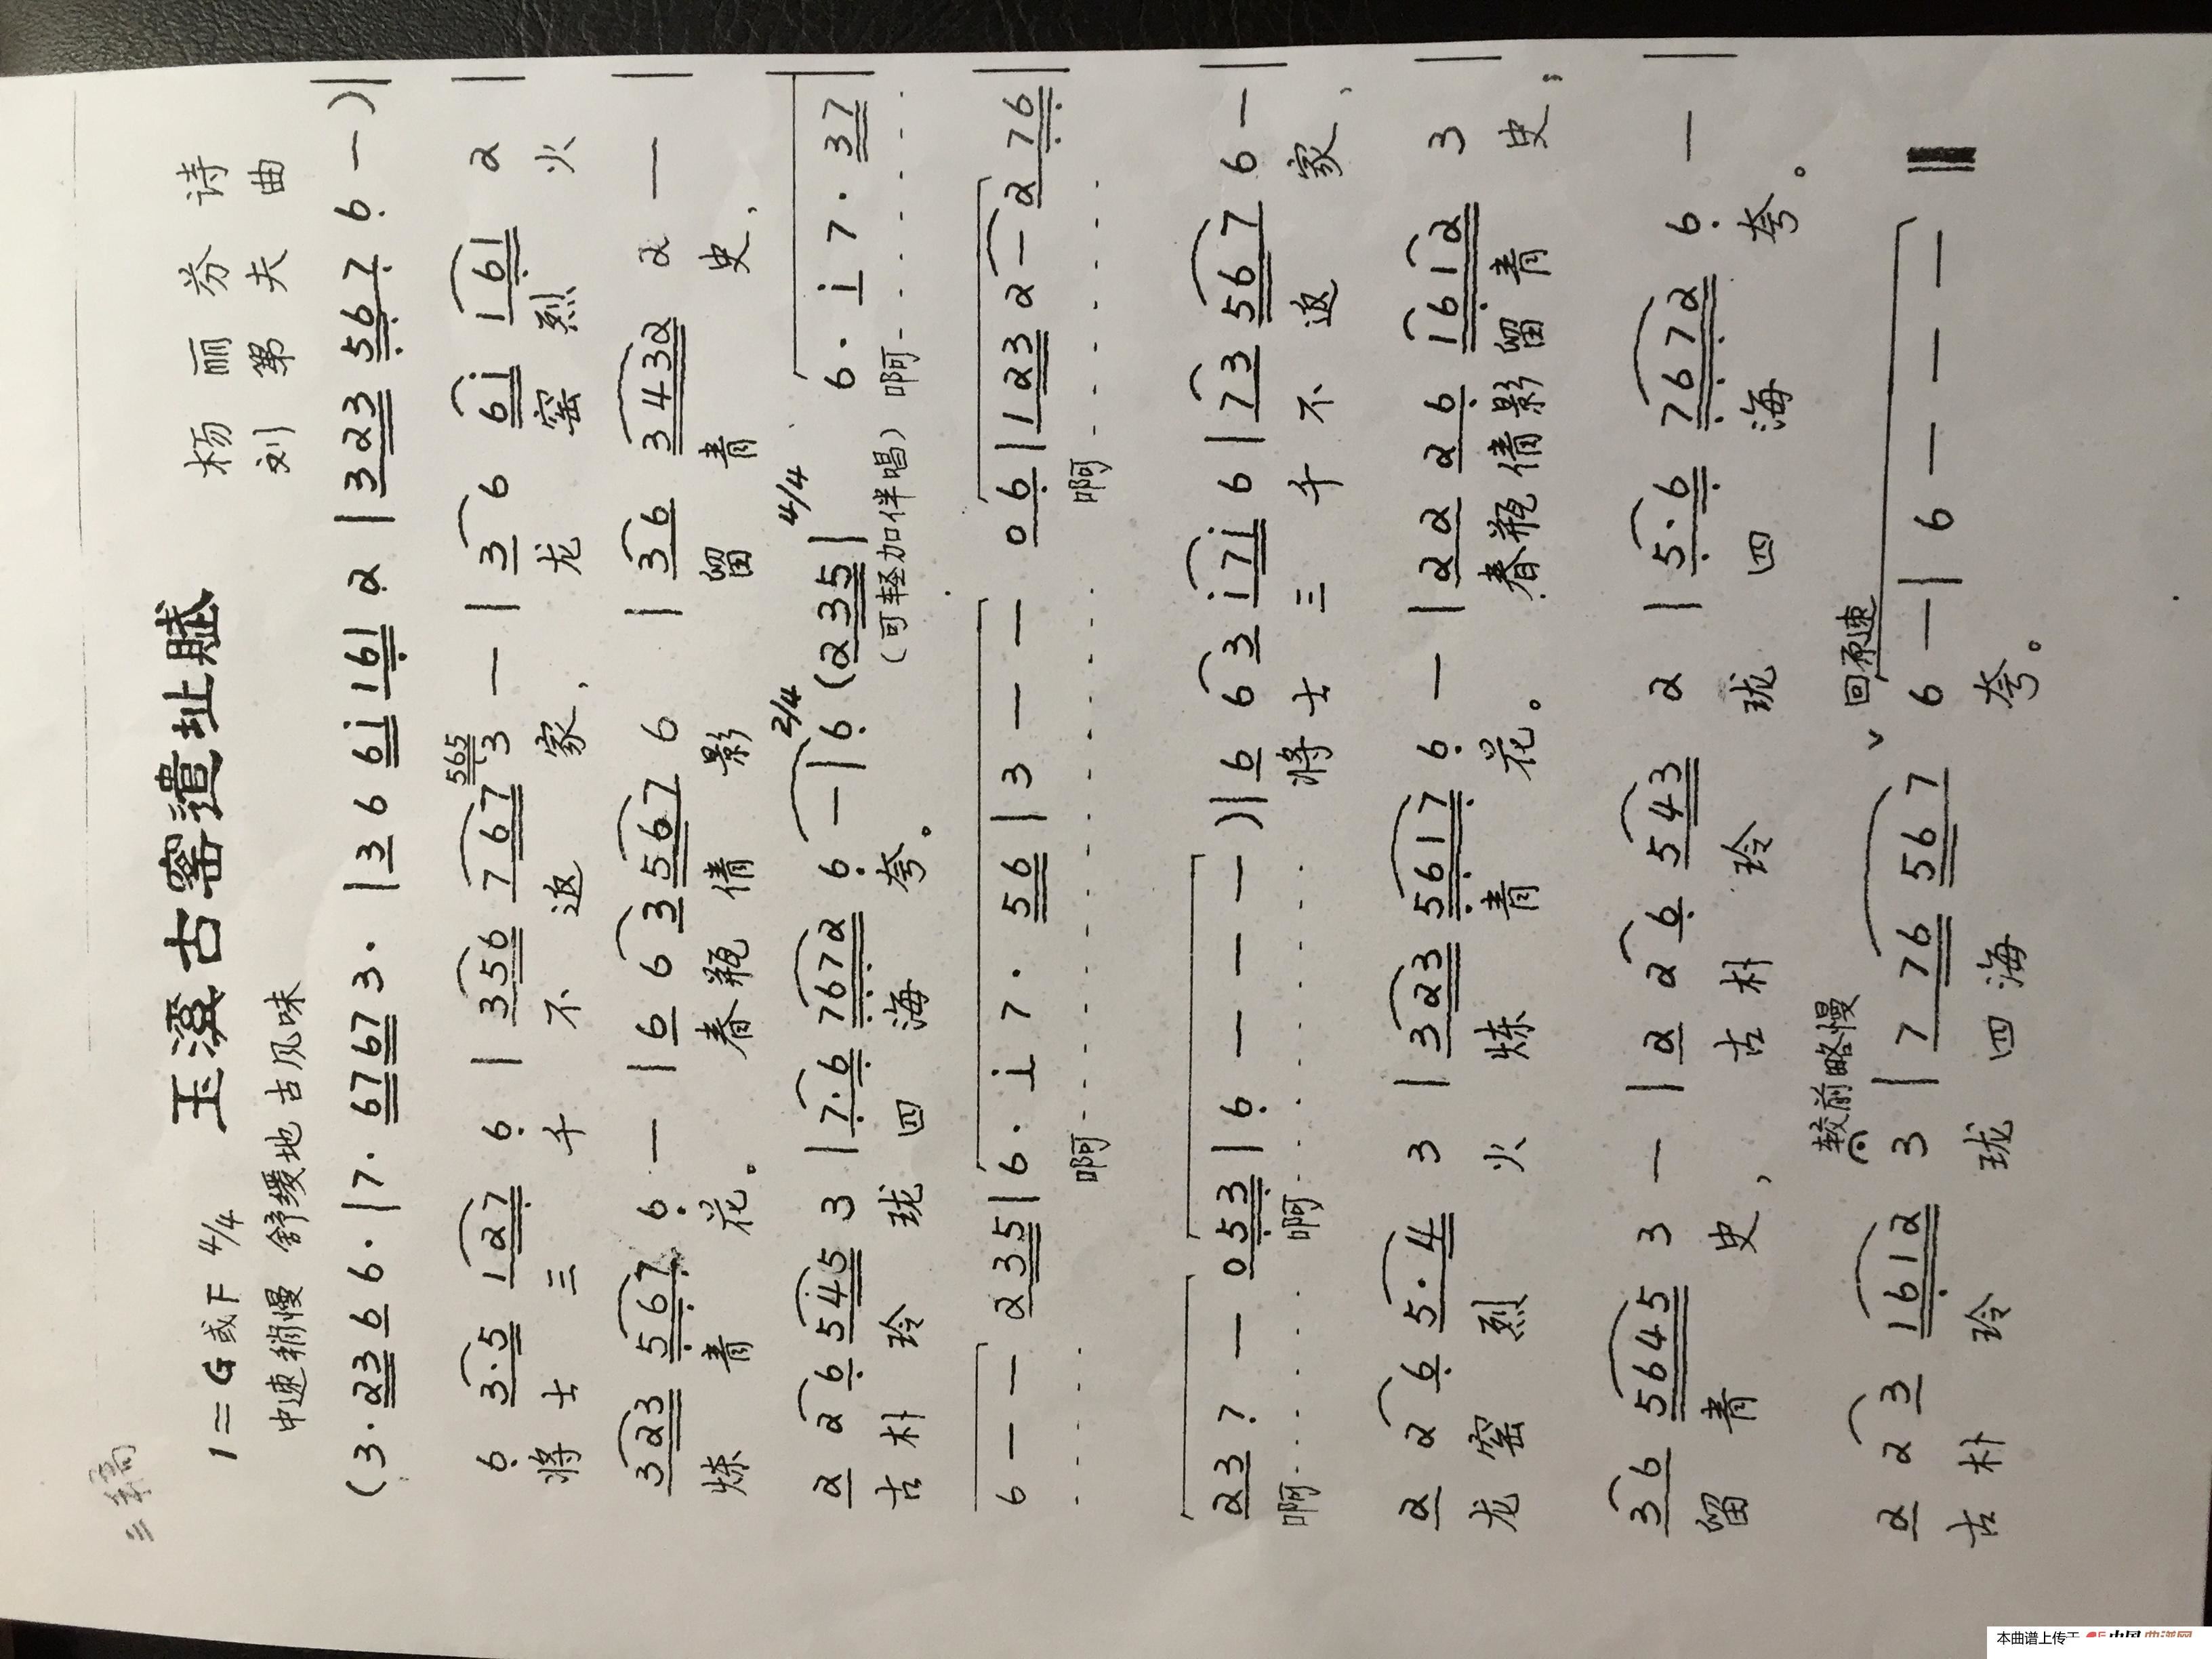 三稿
玉溪古窑遗址赋
1=G或F 4/4 杨丽芬 诗
中速稍慢 舒缓地 古风味 刘第夫 曲
(3· 23 6 6· | 7· 6767 3· | 3 6 6i 161 2 | 323 567 6 — )|
6 3·5 127 6 | 356 767 565 3 — | 36 6 6i 161 2 |
将士三千不返家,龙窑烈火
323 567 6 — | 6 63 567 6 | 36 3432 2 — |
炼青花。春瓶倩影留青史,
2 26 545 3 | 7·6 7672 6 — | 2/4 6 (235 | 4/4 6· i 7· 37 |
古朴玲珑四海夸。(可轻加伴唱)啊
6 — — 235 | 6· i 7· 56 | 3 — — 06 | 123 2 — 276 |
啊 啊
237 — 053 | 6 — — — )| 6 63 i7i 6 | 73 567 6 — |
啊 啊 将士三千不返家,
2 26 5·4 3 | 323 5617 6 — | 22 26 1612 3 |
龙窑烈火炼青花。春瓶倩影留青史;
36 5645 3 — | 2 26 543 2 | 5·6 7672 6 — |
留青史,古朴玲珑四海夸。
较前略慢 回原速
2 23 1612 3 | 7 76 567 6 — | 6 — — — ‖
古朴玲珑四海夸。
本曲谱上传于 中国曲谱网